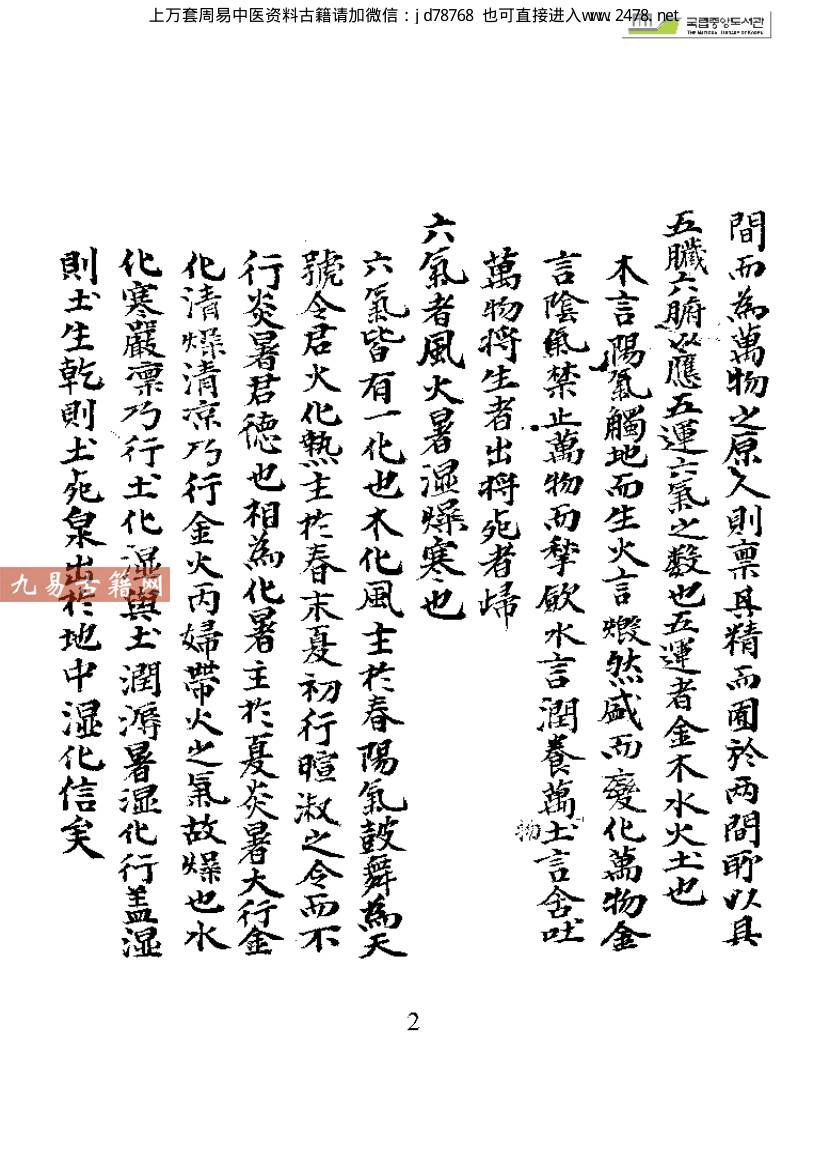 上万套周易中医资料古籍请加微信：jd78768 也可直接进入www.2478.net
국립중앙도서관
THE NATIONAL LIBRARY OF KOREA
間而為萬物之原人則禀其精而囿於两間所以具
五臟六腑以應五運六氣之数也五運者金木水火土也
木言陽氣觸地而生火言煅然盛而變化萬物金
言陰氣禁止萬物而揫歛水言潤養萬物土言含吐
萬物将生者出将死者歸
六氣者風火暑湿燥寒也
六氣皆有一化也木化風主於春陽氣鼓舞為天
號令君火化熱主於春末夏初行暄淑之令而不
行炎暑君德也相為化暑主於夏炎暑大行金
化清燥清凉乃行金火丙婦帶火之氣故燥也水
化寒嚴凛乃行土化湿與土潤溽暑湿化行盖湿
則土生乾則土死泉出於地中湿化信矣
九易古籍网
2